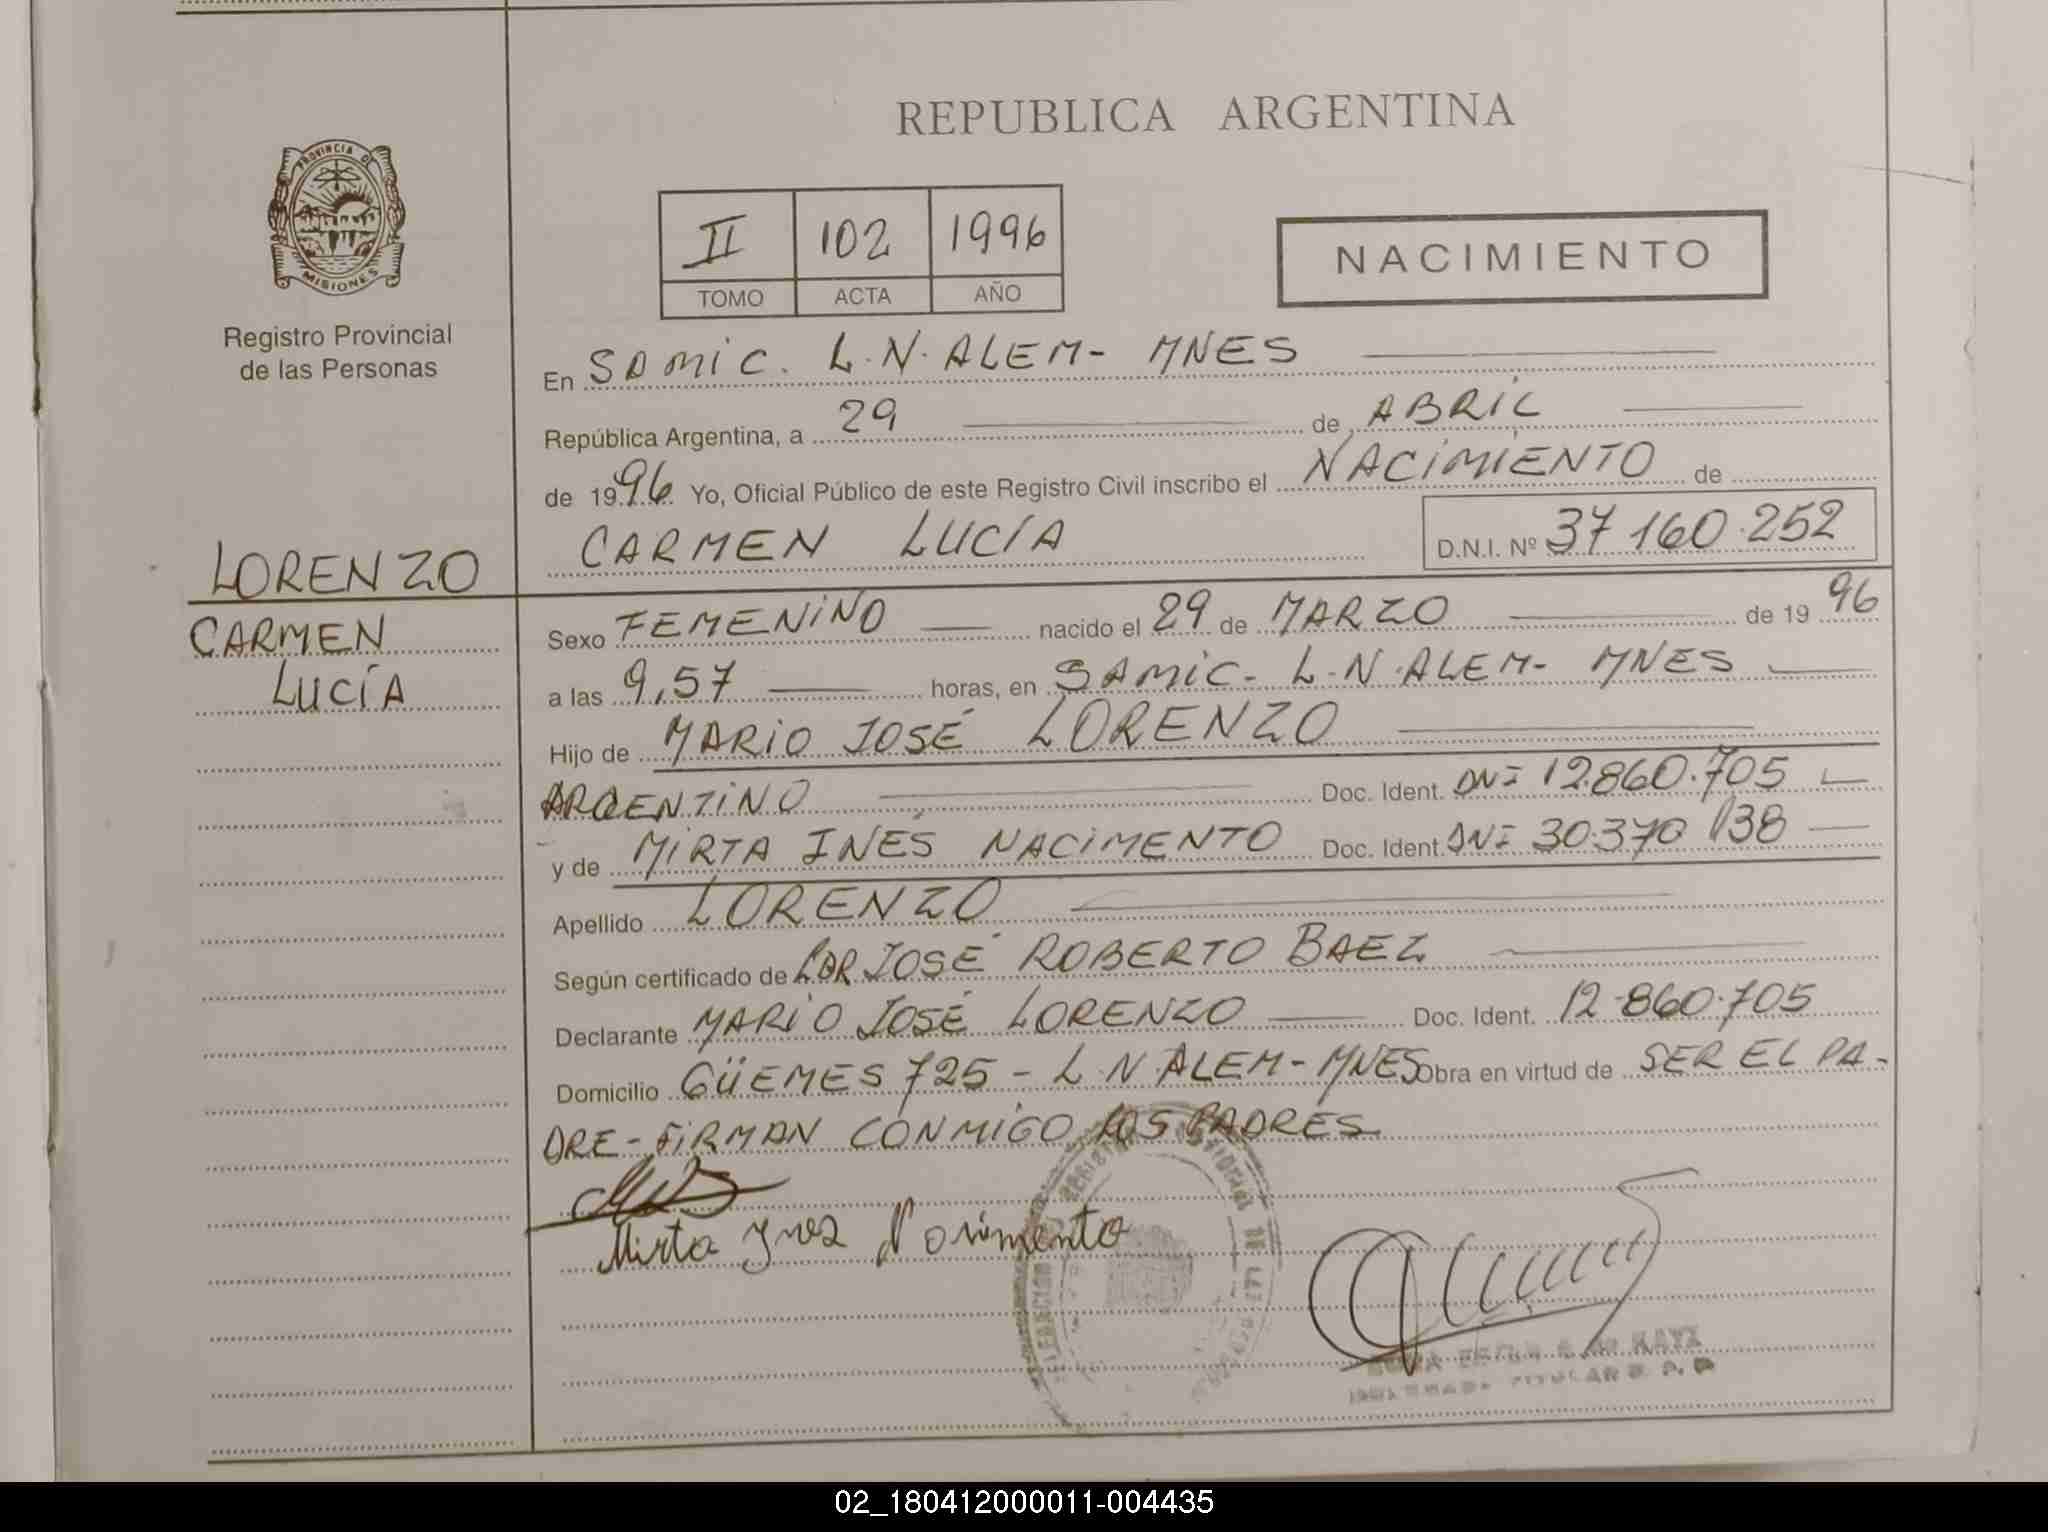 REPUBLICA ARGENTINA
PROVINCIA DE
MISIONES
Registro Provincial
de las Personas
II 102 1996
TOMO ACTA AÑO
NACIMIENTO
En SAMIC. L.N.ALEM- MNES
República Argentina, a 29 de ABRIL
de 1996 Yo, Oficial Público de este Registro Civil inscribo el NACIMIENTO de
CARMEN LUCÍA D.N.I. Nº 37 160.252
LORENZO
CARMEN
LUCÍA
Sexo FEMENINO nacido el 29 de MARZO de 19 96
a las 9,57 horas, en SAMIC- L.N.ALEM- MNES
Hijo de MARIO JOSÉ LORENZO
ARGENTINO Doc. Ident. DNI 12.860.705
y de MIRTA INÉS NACIMENTO Doc. Ident. DNI 30.370 138
Apellido LORENZO
Según certificado de JOSÉ ROBERTO BAEZ
Declarante MARIO JOSÉ LORENZO Doc. Ident. 12.860.705
Domicilio GÜEMES 725 - L.N.ALEM-MNES Obra en virtud de SER EL PA-
DRE - FIRMAN CONMIGO LOS PADRES
Mirta Ynez Nasimento
TITULAR R. P. P.
02_180412000011-004435